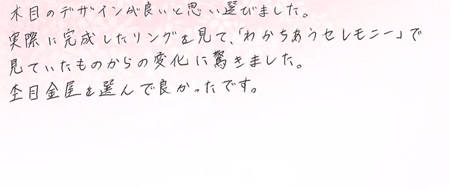 木目のデザインが良いと思い選びました。
実際に完成したリングを見て、「わかちあうセレモニー」で
見ていたものからの変化に驚きました。
杢目金屋を選んで良かったです。